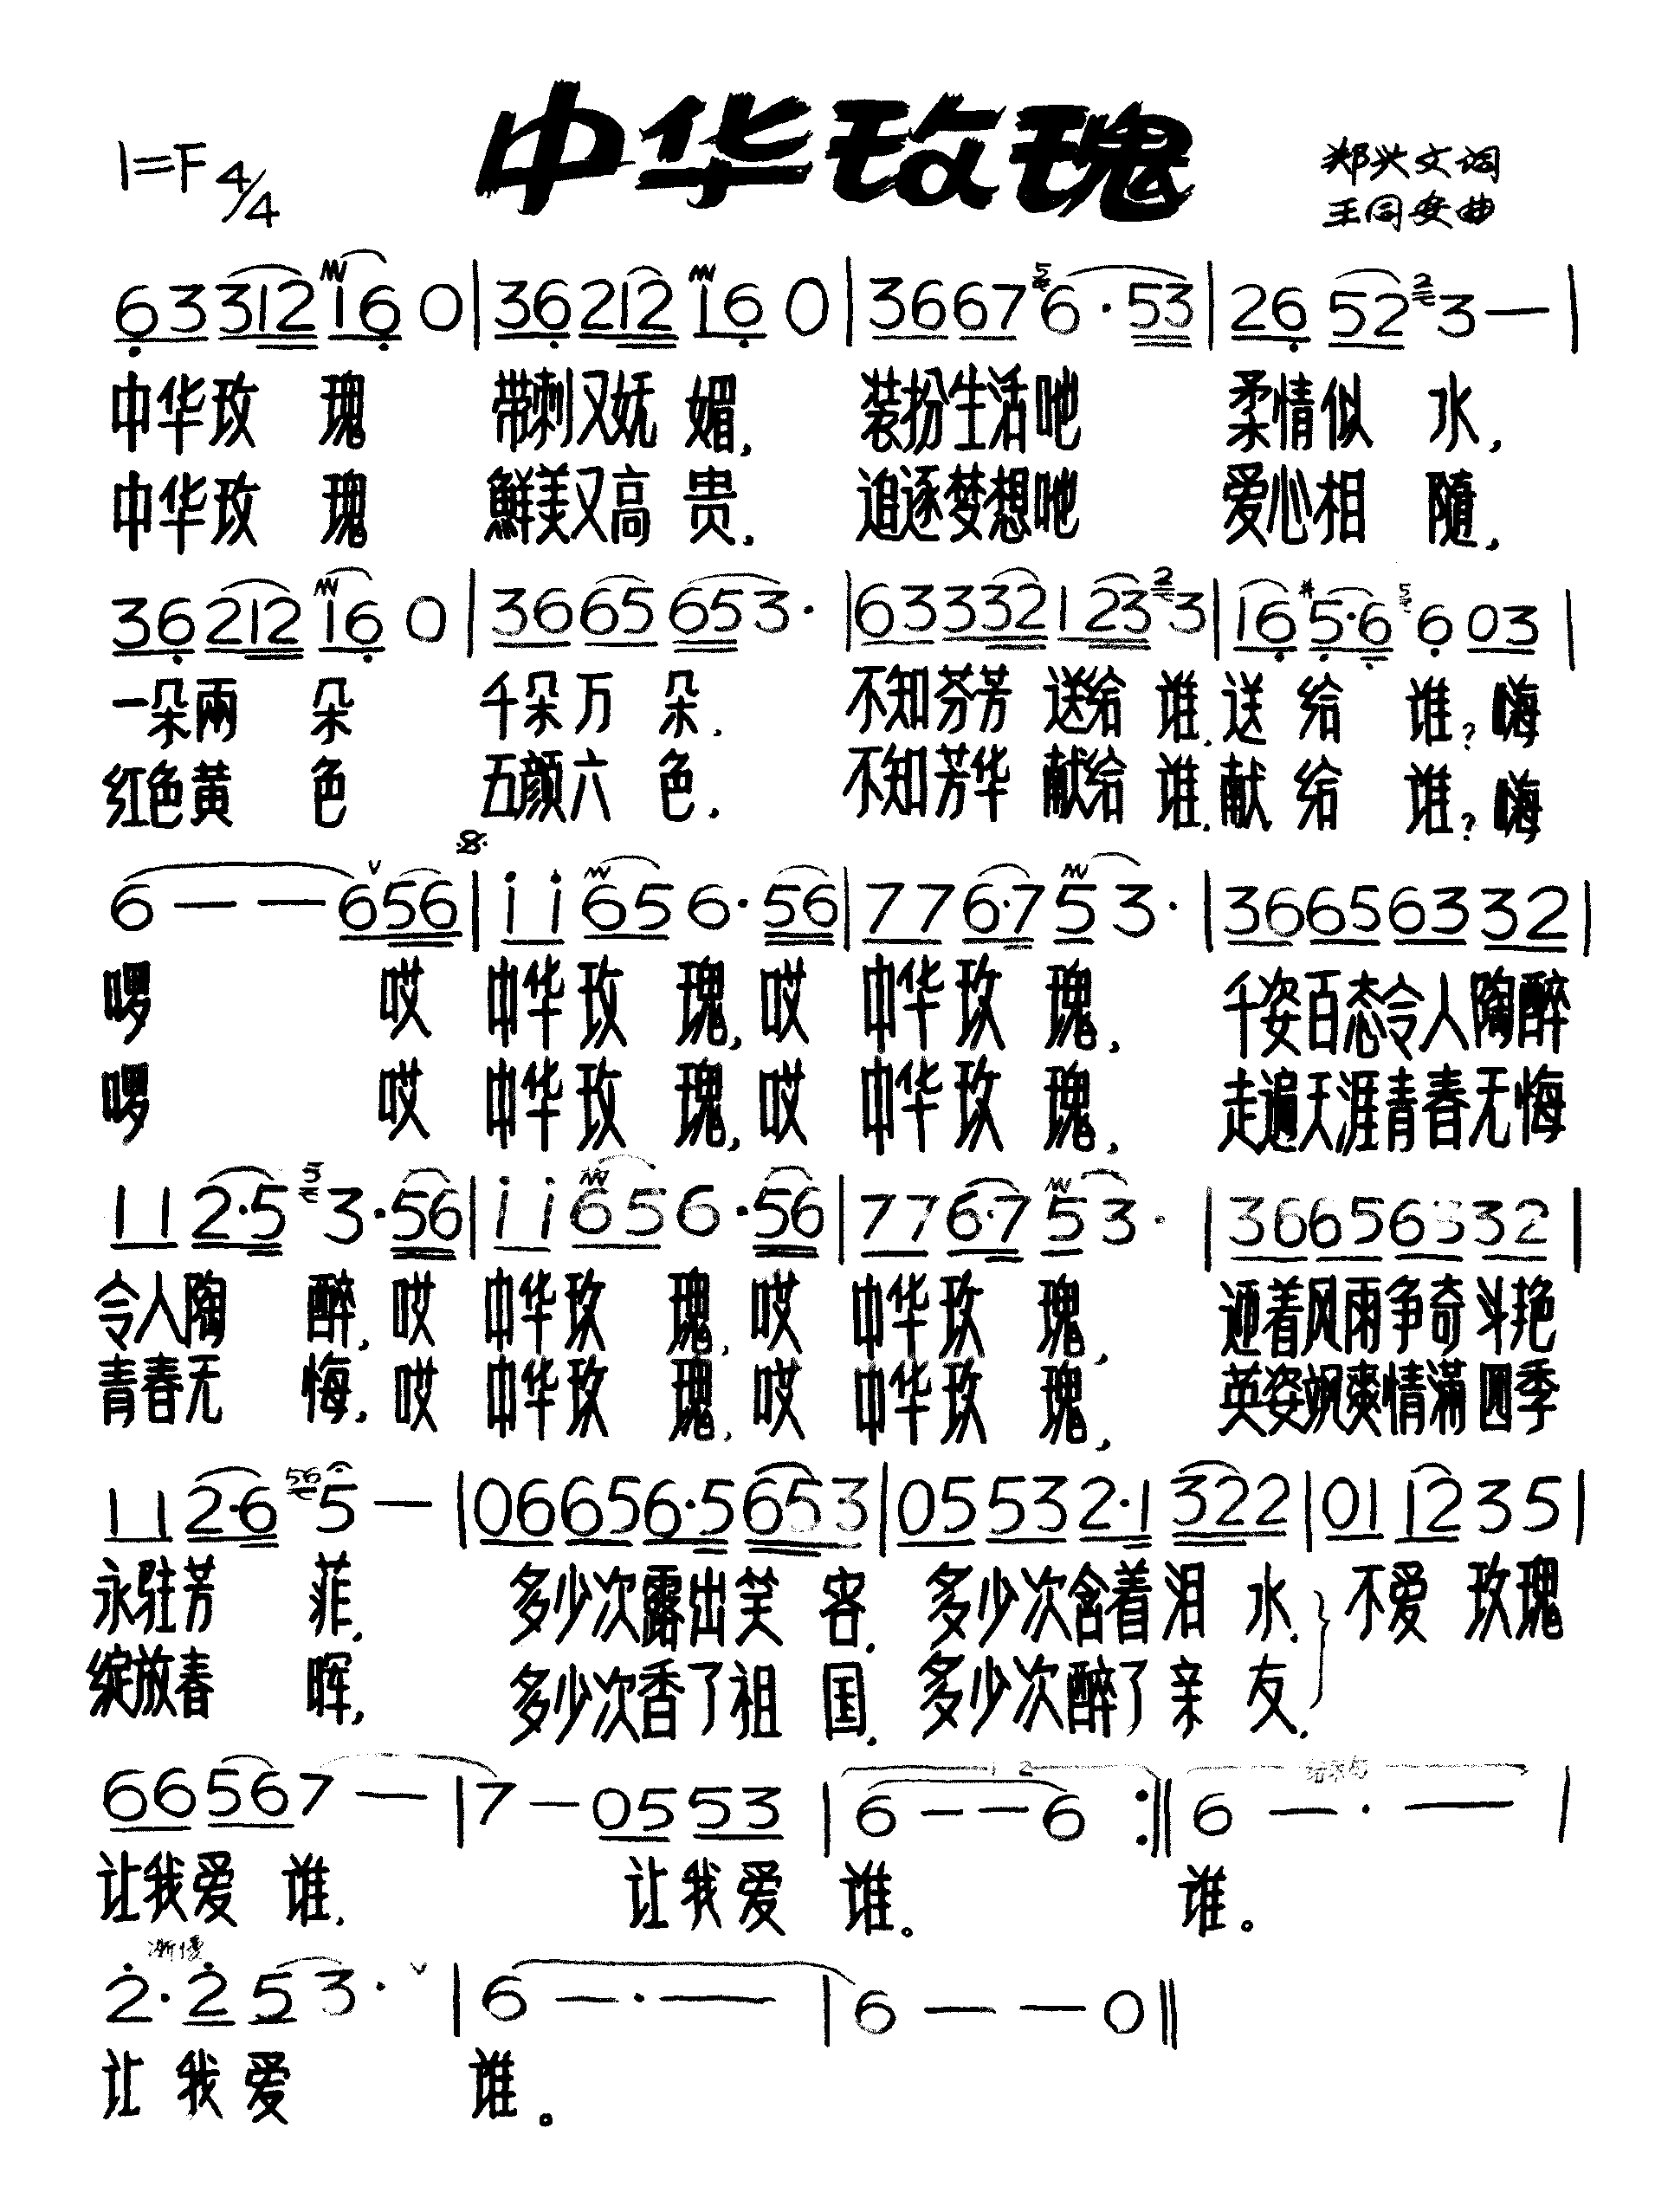 中华玫瑰
1=F 4/4
郑兴文词
王同安曲
6 3 312 16 0 | 36 212 16 0 | 36 67 5 6·53 | 26 52 2 3 — |
中华玫 瑰 带刺又妩 媚, 装扮生活吔 柔情似 水,
中华玫 瑰 鮮美又高 贵. 追逐梦想吔 爱心相 隨,
36 212 16 0 | 36 65 65 3· | 63 332 1 23 2 3 | 16 #5·6 5 6 03 |
一朵兩 朵 千朵万 朵. 不知芬芳 送给 谁,送 给 谁?嗨
红色黄 色 五颜六 色. 不知芳华 献给 谁,献 给 谁?嗨
6 — — 656 | i i 65 6·56 | 77 6·7 5 3· | 36 65 63 32 |
啰 哎 中华玫 瑰,哎 中华玫 瑰, 千姿百态令人陶醉
啰 哎 中华玫 瑰,哎 中华玫 瑰, 走遍天涯青春无悔
11 2·5 5 3·56 | i i 65 6·56 | 77 6·7 5 3· | 36 65 63 32 |
令人陶 醉,哎 中华玫 瑰,哎 中华玫 瑰, 迎着风雨争奇斗艳
青春无 悔,哎 中华玫 瑰,哎 中华玫 瑰, 英姿飒爽情满四季
11 2·6 56 5 — | 06 65 6·5 653 | 05 53 2·1 322 | 01 12 3 5 |
永驻芳 菲, 多少次露出笑 容, 多少次含着泪 水, 不爱 玫瑰
绽放春 晖, 多少次香了祖 国, 多少次醉了亲 友.
66 56 7 — | 7 — 05 53 | 1 2 6 — — 6 :‖ 结束句 6 — · — |
让我爱 谁, 让我爱 谁。 谁。
渐慢
2· 2 5 3· ∨ | 6 — · — | 6 — — 0 ‖
让 我 爱 谁。